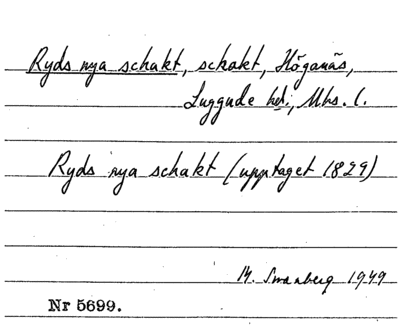 Ryds nya schakt, schakt, Höganäs,
Luggude hd; Mhs. l.
Ryds nya schakt (upptaget 1829)
M. Svanberg 1949
Nr 5699.